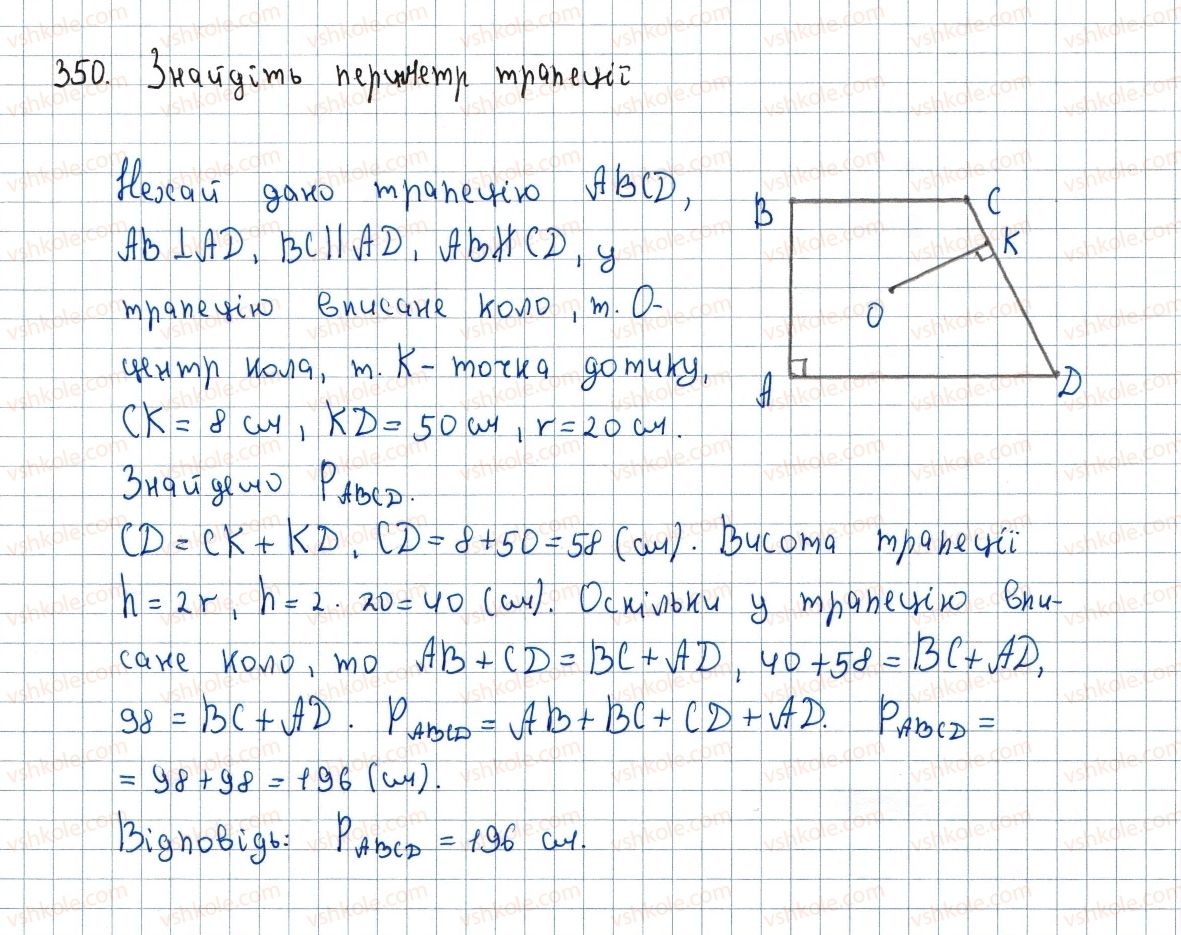 350. Знайдіть периметр трапеції
Нехай дано трапецію ABCD,
AB⊥AD, BC||AD, AB∦CD, у
трапецію вписане коло, т. О-
центр кола, т. К - точка дотику,
CK = 8 см, KD = 50 см, r = 20 см.
Знайдемо P_ABCD.
CD = CK + KD, CD = 8 + 50 = 58 (см). Висота трапеції
h = 2r, h = 2 · 20 = 40 (см). Оскільки у трапецію впи-
сане коло, то AB + CD = BC + AD, 40 + 58 = BC + AD,
98 = BC + AD. P_ABCD = AB + BC + CD + AD. P_ABCD =
= 98 + 98 = 196 (см).
Відповідь: P_ABCD = 196 см.
B
C
K
O
A
D
vshkole.com